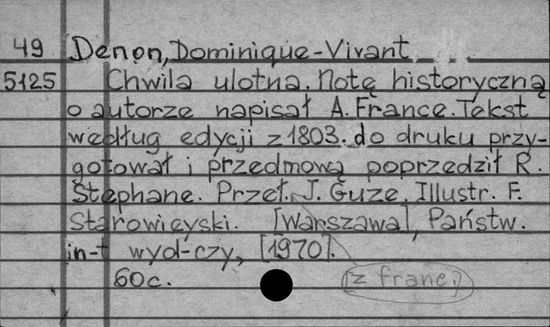 49 Denon, Dominique-Vivant
5125 Chwila ulotna. Notę historyczną
o autorze napisał A. France. Tekst
według edycji z 1803. do druku przy-
gotował i przedmową poprzedził R.
Stephane. Przeł. J. Guze, Illustr. F.
Starowieyski. [Warszawa], Państw.
in-t wyd-czy, [1970].
60c. [z franc.]